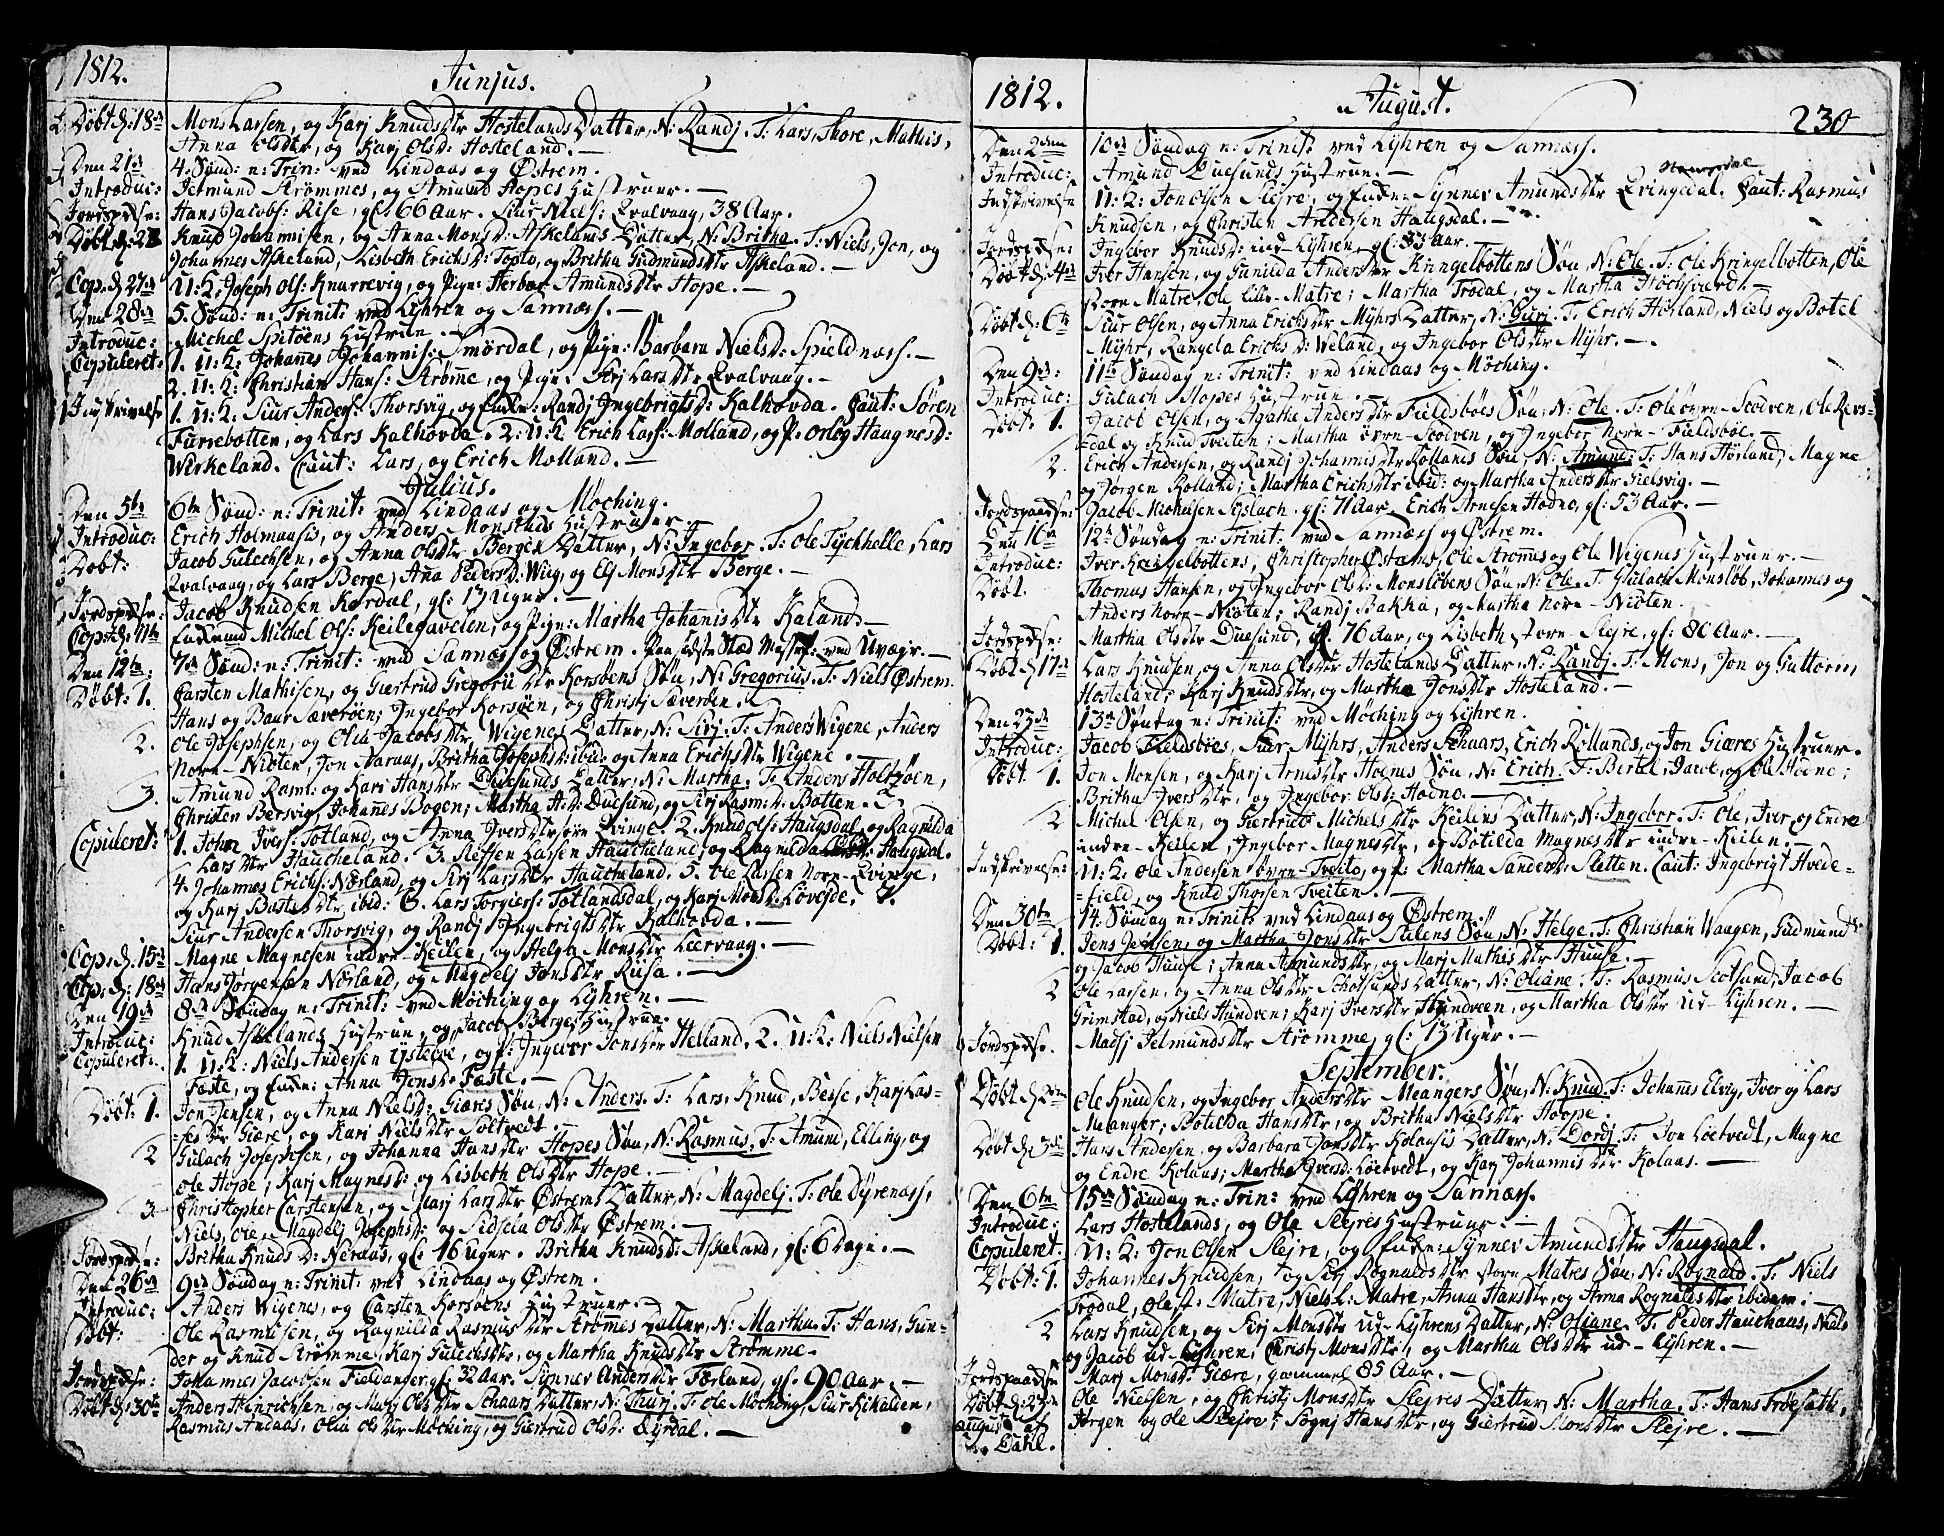 1812.
Junius.
Døbt d: 18de Mons Larsen, og Karj Knudsdtr Hostelands Datter, N: Randj. T: Lars, Thore, Mathis,
Anna Olsdtr, og Karj Olsd: Hosteland. —
Den 21de 4. Sønd: n: Trin: ved Lindaas og Østrem.
Introduc: Jetmund Strømmes, og Amund Hopes Hustruer. —
Jordspdse: Hans Jacobs: Rise, gl. 66 Aar. Siur Niels: Qvalvaag, 38 Aar.
Døbt d: Knud Johannisen, og Anna Monsd: Askelands Datter, N: Britha. T: Niels, Jon, og
Johannes Askeland, Lisbeth Erichsd: Toplo, og Britha Gudmundsdtr Askeland. —
Cop: d: 27de U: K: Joseph Ols: Knarrevig, og Pige: Herbor Amundsdtr Hope. —
Den 28de 5. Sønd: n: Trinit: ved Lyhren og Sannæss. —
Introduc: Michel Spitøens Hustrue. —
Copuleret: 1. U: K: Johannes Johannis: Smørdal, og Pige: Barbara Nielsd: Spieldnæss. —
2. U: K: Christian Hans: Strømme, og Pige: Sirj Larsdtr Qvalvaag. —
Indskrivelse 1. U: K: Siur Anders: Thorsvig, og Enke: Randj Ingebrigtsd: Kalhovda. Caut: Søren
Fursebotten, og Lars Kalhovda. 2: U: K: Erich Lars: Molland, og P: Orlög Haagnesd:
Wirkeland. Caut: Lars, og Erich Molland. —
Julius.
Den 5te 6te Sønd: n: Trinit: ved Lindaas og Møching.
Introduc: Erich Holmaasis, og Anders Monstads Hustruer. —
Døbt: Jacob Gulechsen, og Anna Olsdtr Berges Datter, N: Ingebor. T: Ole Tychhelle, Lars
Qvalvaag, og Lars Berge, Ana Pedersd: Wiig, og Els Monsdtr Berge. —
Jordspdse: Jacob Knudsen Kordal, gl: 13 Uger. —
Cop: d: 11te Enkemd Michel Ols: Keilegavelen, og Pige: Martha Johanisdtr Kaland. —
Den 12te: 7de Sønd: n: Trinit: ved Sannæss og Østrem. Paa sidste Stæd Messef: ved Uvæjr. —
Døbt: 1. Carsten Mathisen, og Giertrud Gregorii dtr Korsøens Søn, N: Gregorius. T: Niels Østrem,
Hans og Baar Sæverøen; Ingebor Korsøen, og Christj Sæverøen. —
2. Ole Josephsen, og Olia Jacobsdtr Wigenes Datter, N: Sirj. T: Anders Wigene, Anders
Norn-Nioten, Jon Aaraas, Britha Josephsd: ibid: og Anna Erichsdtr Wigene. —
3. Amund Rasm: og Kari Hansdtr Duesunds Datter, N: Martha. T: Anders Holtzøen,
Christen Bersvig, Johanes Bogen; Martha H: D: Duesund, og Sirj Rasm: D: Botten. —
Copuleret: 1. John Ivers: Totland, og Anna Iversdtr søre Qvinge. 2. Knud Ols: Haugsdal, og Ragnilda
Larsdtr Haucheland. 3. Steffen Larsen Haucheland, og Ragnilda Haugsdal.
4. Johannes Erichs: Nørland, og Sirj Larsdtr Haucheland. 5. Ole Larsen Norn-Qvinge,
og Karj Bastesdtr ibid: 6. Lars Torgiers: Totlandsdal, og Karj Monsd: Løvejde. 7.
Siur Andersen Thorsvig, og Randj Ingebrigtsdtr Kalhovda. —
Cop: d: 15de Magne Magnesen indre-Keilen, og Helga Monsdtr Leervaag. —
Cop: d: 18de Hans Jørgensen Norland, og Magdelj Jonsdtr Riisa. —
Den 19de 8de Søndag n: Trinit: ved Møching og Lyhren. —
Introduc: Knud Askelands Hustrue, og Jacob Berges Hustrue.
Copuleret: 1. U: K: Niels Andersen Ystebøe, og P: Ingebor Jonsdtr Helland. 2. U: K: Niels Nielsen
Fæste, og Enke: Anna Jonsdtr Fæste. —
Døbt: 1. Jon Jensen, og Anna Nielsd: Giæres Søn, N: Anders. T: Lars, Knud, Besse, Karj Las-
=sesdtr Giære, og Kari Nielsdtr Soltvedt. —
2 Gulach Josephsen, og Johanna Hansdtr Hopes Søn, N: Rasmus. T: Amund, Elling, og
Ole Hope; Karj Magnesd: og Lisbeth Olsdtr Hope. —
3. Christopher Carstensen, og Marj Larsdtr Østrems Datter, N: Magdelj. T: Ole Dyrenæss,
Niels, Ole, Magdelj Josephsd: og Sidselia Olsdtr Østrem. —
Jordspdse: Britha Knuds D: Neraas, gl: 16 Uger. Britha Knudsd: Askeland, gl: 6 Dage. —
Den 26de 9de Søndag n: Trinit: ved Lindaas og Østrem.
Introduc: Anders Wigenes, og Carsten Korsøens Hustruer. —
Døbt: Ole Rasmusen, og Ragnilda Rasmusdtr Strømes Datter, N: Martha. T: Hans, Gun-
der og Knud Strømme, Karj Gulechsdtr, og Martha Knudsdtr Strømme.
Jordspdse: Johannes Jacobsen Fieldanger, gl: 32 Aar. Synnev Andersdtr Færland, gl: 90 Aar. —
Døbt d: 30te Anders Hinrichsen, og Marj Olsdtr Schaars Datter, N: Thurj. T: Ole Møching, Siur Kikalien,
Rasmus Andaas, Olia Olsdtr Møching, og Giertrud Olsd: Qyrdal. —
1812.
August.
230
Den 2den 10de Søndag n: Trinit: ved Lyhren og Sannæss.
Introduc: Amund Duesunds Hustrue. —
Indskrivelse U: K: Jon Olsen Slejre, og Enke: Synnev Amundsdtr Qvingedal. Caut: Rasmus
Knudsen, og Christen Andersen Haugsdal. —
Jordspdse: Ingebor Knudsd: ind-Lyhren, gl: 33 Aar.
Døbt d: 4de Iver Hansen, og Gunilda Andersdtr Kringelbottens Søn, N: Ole. T: Ole Kringelbotten, Ole
Storn Matre, Ole lille-Matre; Martha Trodal, og Martha Hochsvedt. —
Døbt d: 6te Siur Olsen, og Anna Erichsdtr Myhrs Datter, N: Gurj. T: Erich Hørland, Niels og Botel
Myhr, Rangela Erichsd: Weland, og Ingebor Olsdtr Myhr. —
Den 9de: 11te Søndag n: Trinit: ved Lindaas og Møching.
Introduc: Gulach Hopes Hustrue. —
Døbt: 1. Jacob Olsen, og Agathe Andersdtr Fieldsbøes Søn, N: Ole. T: Ole øvre-Scodven, Ole Revs-
=dal og Knud Tveiten; Martha øvre-Scodven, og Ingebor Norn-Fieldsbøe. —
2. Erich Andersen, og Randj Johannisdtr Rollands Søn, N: Amund: T: Hans Hørland, Magne
og Jørgen Rolland; Martha Erichsdtr ibid: og Martha Andersdtr Gielsvig. —
Jordspaadse: Jacob Michelsen Syslach. gl: 71 Aar. Erich Arnesen Hodne, gl: 53 Aar. —
Den 16de 12te Søndag n: Trinit: ved Sannæss og Østrem.
Introduc: Iver Kringelbottens, Christopher Østrems, Ole Strømes og Ole Wigenes Hustruer. —
Døbt. Thomas Hansen, og Ingebor Olsd: Monsløbens Søn, N: Ole. T: Gulach Monsløb, Johannes og
Anders Norn-Nioten; Randj Bakka, og Martha Norn-Nioten.
Jordspdse: Martha Olsdtr Duesund, gl. 76 Aar, og Lisbeth storn-Slejre, gl: 80 Aar. —
Døbt d: 17de Lars Knudsen, og Anna Olsdtr Hostelands Datter, N: Randj. T: Mons, Jon og Guttorm,
Hosteland: Karj Knudsdtr, og Martha Jonsdtr Hosteland. —
Den 23de 13de Søndag n: Trinit: ved Møching og Lyhren.
Introduc: Jacob Fieldsbøes, Siur Myhrs, Anders Schaars, Erich Rollands, og Jon Giæres Hustruer.
Døbt 1. Jon Monsen, og Karj Arnesdtr Hodnes Søn, N: Erich. T: Bertel, Jacob, og Ole Hodne;
Britha Iversdtr, og Ingebor Olsd: Hodne. —
2 Michel Olsen, og Giertrud Michelsdtr Keilens Datter, N: Ingebor. T: Ole, Iver og Endre
indre-Keilen, Ingebor Magnesdtr, og Botilda Magnesdtr indre-Keilen. —
Indskrivelse: U: K: Ole Andersen søvre-Tveito, og P: Martha Sandersd: Sletten. Caut: Ingebrigt Hvede-
=field, og Knud Thorsen Tveiten. —
Den 30te 14. Søndag n: Trinit: ved Lindaas og Østrem.
Døbt: 1. Jens Jensen, og Martha Jonsdtr Sulens Søn, N: Helge. T: Christian Waagen, Gudmund
og Jacob Huuse; Anna Amundsdtr, og Marj Mathisdtr Huuse. —
2 Ole Larsen, og Anna Olsdtr Schotsunds Datter, N: Oliane. T: Rasmus Scotsund, Jacob
Grimstad, og Niels Hundven; Karj Iversdtr Hundveen, og Martha Olsdtr ud-Lyhren. —
Jordspdse. Madsj Jetmundsdtr Strømme, gl: 13 Uger. —
September.
Døbt d: 2den Ole Knudsen, og Ingebor Andersdtr Meangers Søn, N: Knud. T: Johannes Elvig, Iver og Lars
Meanger; Botilda Hansdtr, og Britha Nielsdtr Hoope.
Døbt d: 3de Hans Andersen, og Barbara Jonsdtr Kolaasis Datter, N: Dordj. T: Jon Løetvedt, Magne
og Endre Kolaas; Martha Iversd: Løetvedt, og Karj Johannisdtr Kolaas. —
Den 6te 15de Søndag n: Trin: ved Lyhren og Sannæss.
Introduc: Lars Hostelands, og Ole Slejres Hustruer. —
Copuleret. U: K: Jon Olsen Slejre, og Enke: Synnev Amundsdtr Haugsdal.
Døbt: 1. Johannes Knudsen, og Sirj Rognaldsdtr storn Matres Søn, N: Rognald. T: Niels
Trodal, Ole st: Matre, Niels l: Matre, Anna Hansdtr, og Anna Rognaldsdtr ibidem: —
2 Lars Knudsen, og Sirj Monsdtr ud-Lyhrens Datter, N: Oliane. T: Peder Hauchaas, Niels
og Jacob ud Lyhren; Christj Monsdtr, og Martha Olsdtr ud-Lyhren. —
Jordspaadse Marj Monsd: Giære, gammel 85 Aar. —
Døbt d: 23de Ole Nielsen, og Christj Monsdtr Slejres Datter, N: Martha. T: Hans Frøesæth,
August af Jørgen og Ole Slejre; Sognj Hansdtr, og Giertrud Monsdtr Slejre. —
Dahl.